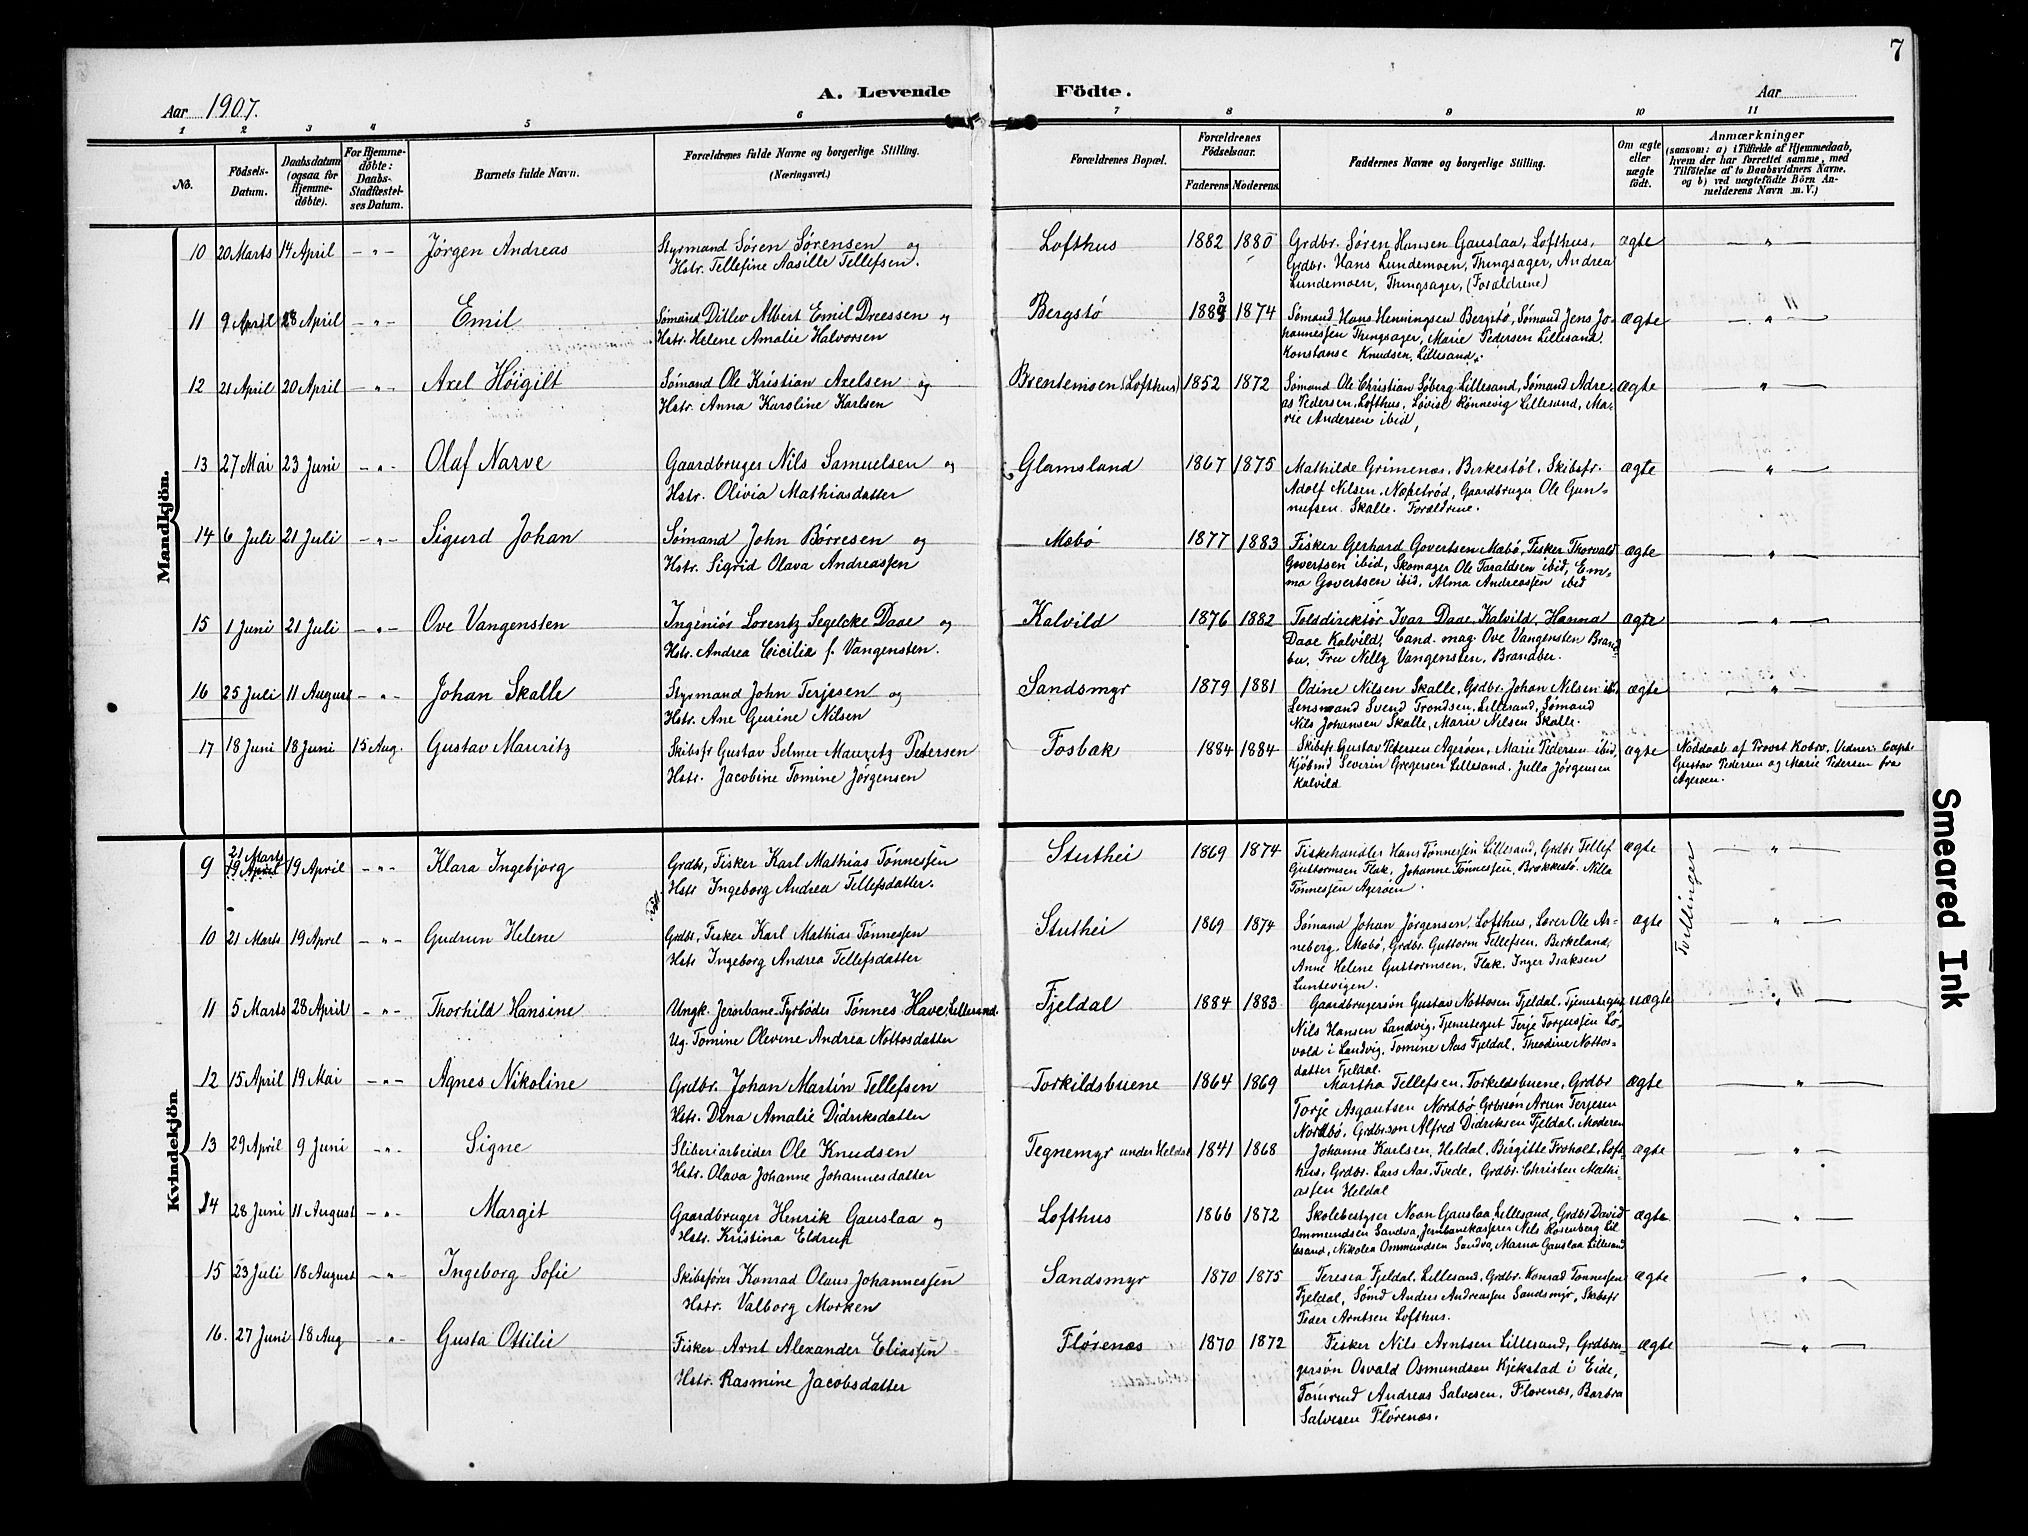 7
Aar 1907.
A. Levende Födte.
Aar
1 2 3 4 5 6 7 8 9 10 11
No.
Födsels-
Datum.
Daabsdatum
(ogsaa for
Hjemme-
døbte).
For Hjemme-
døbte:
Daabs-
Stadfæstel-
ses Datum.
Barnets fulde Navn.
Forældrenes fulde Navne og borgerlige Stilling.
(Næringsvei.)
Forældrenes Bopæl.
Forældrenes
Födselsaar.
Faderens. Moderens.
Faddernes Navne og borgerlige Stilling.
Om ægte
eller
uægte
født.
Anmærkninger
(saasom: a) i Tilfælde af Hjemmedaab,
hvem der har forrettet samme, med
Tilføielse af to Daabsvidners Navne.
og b) ved uægtefödte Börn An-
melderens Navn m. V.)
Mandkjön.
10 20 Marts 14 April - " - Jørgen Andreas Styrmand Søren Sørensen og Lofthus 1882 1880 Grdbr. Søren Hansen Gauslaa, Lofthus, ægte — " —
Hstr. Tellefine Aasille Tellefsen. Grdbr. Hans Lundemoen, Thingsager, Andrea
Lundemoen, Thingsager, (Forældrene)
11 9 April 28 April - " - Emil Sømand Ditlev Albert Emil Dreessen og Bergstø 1883 1874 Sømand Hans Henningsen Bergstø, Sømand Jens Jo- ægte — " —
Hstr. Helene Amalie Halvorsen hannessen Thingsager, Marie Pedersen Lillesand.
Konstanse Knudsen, Lillesand.
12 21 April 20 April - " - Axel Høigilt Sømand Ole Kristian Axelsen og Brentemoen (Lofthus) 1852 1872 Sømand Ole Christian Søberg Lillesand, Sømand Adre- ægte — " —
Hstr. Anna Karoline Karlsen as Pedersen, Lofthus, Løvise Rønnevig Lillesand, Ma-
rie Andersen ibid,
13 27 Mai 23 Juni - " - Olaf Narve Gaardbruger Nils Samuelsen og Glamsland 1867 1875 Mathilde Grimenæs, Birkestøl, Skibsfr. ægte — " —
Hstr. Olivia Mathiasdatter Adolf Nilsen, Næpetrød, Gaardbruger Ole Gun-
nufsen, Skalle. Forældrene.
14 6 Juli 21 Juli - " - Sigurd Johan Sømand John Børresen og Mæbø 1877 1883 Fisker Gerhard Govertsen Mæbø, Fisker Thorvald ægte — " —
Hstr. Sigrid Olava Andreassen Govertsen ibid, Skomager Ole Taraldsen ibid, Em-
ma Govertsen ibid, Alma Andreassen ibid
15 1 Juni 21 Juli - " - Ove Vangensten Ingeniør Lorentz Segelcke Daae og Kalvild 1876 1882 Tolddirektør Ivar Daae Kalvild, Hanna ægte — " —
Hstr. Andrea Cicilie f. Vangensten. Daae Kalvild, Cand. mag. Ove Vangensten Brand-
bu, Fru Nelly Vangensten, Brandbu.
16 25 Juli 11 August - " - Johan Skalle Styrmand John Terjesen og Sandsmyr 1879 1881 Odine Nilsen Skalle, Grdbr. Johan Nilsen ib. ægte — " —
Hstr. Ane Gurine Nilsen Lensmand Svend Trondsen, Lillesand, Sømand
Nils Johansen Skalle, Marie Nilsen Skalle.
17 18 Juni 18 Juni 15 Aug. Gustav Mauritz Skibsfr Gustav Selmer Mauritz Pedersen Fosbæk 1884 1884 Skibsfr Gustav Pedersen Agerøen, Marie Pedersen ibid, ægte Nøddaab af Provst Kobro. Vidner: Capt.
Hstr. Jacobine Tomine Jørgensen Kjøbmd Severin Gregersen Lillesand, Julla Jørgensen Gustav Pedersen og Marie Pedersen fra
Kalvild Agerøen.
Kvindekjön
9 21 Marts 19 April 19 April - " - Klara Ingebjorg Grdbr, Fisker Karl Mathias Tønnessen Stuthei 1869 1874 Fiskehandler Hans Tønnessen Lillesand, Grdbr Tellef ægte — " —
Hstr Ingeborg Andrea Tellefsdatter. Guttormsen Flak, Johanne Tønnessen, Brækkestø. Nilla
Tønnessen Agerøen.
Tvillinger
10 21 Marts 19 April - " - Gudrun Helene Grdbr, Fisker Karl Mathias Tønnessen Stuthei 1869 1874 Sømand Johan Jörgensen, Lofthus, Lærer Ole Ar- ægte — " —
Hstr Ingeborg Andrea Tellefsdatter neberg, Mæbø, Grdbr. Guttorm Tellefsen, Birkeland,
Anne Helene Guttormsen, Flak. Inger Isaksen
Luntevigen.
11 5 Marts 28 April - " - Thorhild Hansine Ungk. Jernbane-Fyrbøder Tønnes Have, Lillesand. Fjeldal 1884 1883 Gaardbrugersøn Gustav Nottosen Fjeldal, Tjenestegut uægte — " —
Ug. Tomine Olevine Andrea Nottosdatter Nils Hansen Landvig, Tjenestegut Terje Torjussen Lø-
vold i Landvig, Tomine Aas Fjeldal, Theodine Nottos-
datter Fjeldal.
12 15 April 19 Mai - " - Agnes Nikoline Grdbr. Johan Martin Tellefsen Torkildsbuene 1864 1869 Martha Tellefsen, Torkildsbuene, Grdbr ægte — " —
Hstr. Dina Amalie Didriksdatter Torje Asgautsen Nordbø Grbrsøn Arun Terjesen
Nordbø, Grdbrson Alfred Didriksen Fjeldal, Moderen
13 29 April 9 Juni - " - Signe Sliberiarbeider Ole Knudsen Tegnemyr under Heldal 1841 1868 Johanne Karlsen, Heldal, Birgitte Froholt, Loft- ægte — " —
Hstr. Olava Johanne Johannesdatter hus, Grdbr. Lars Aas, Tvede, Grdbr. Christen Mathi-
assen Heldal
14 28 Juni 11 August - " - Margit Gaardbruger Henrik Gauslaa og Lofthus 1866 1872 Skolebestyrer Noan Gauslaa, Lillesand, Grdbr David ægte — " —
Hstr. Kristina Eldrup Ommundsen Sandva, Jernbanekasserer Nils Rosenberg Lil-
lesand, Nikolea Ommundsen Sandva, Marna Gauslaa Lillesand
15 23 Juli 18 August - " - Ingeborg Sofie Skibsfører Konrad Olaus Johannessen Sandsmyr 1870 1875 Teresia Fjeldal, Lillesand, Grdbr. Konrad Tønnessen ægte — " —
Hstr. Valborg Morken Fjeldal, Sømd Anders Andreassen Sandsmyr, Skibsfr
Peder Arntsen Lofthus.
16. 27 Juni 18 Aug - " - Gusta Ottilie Fisker Arnt Alexander Eliassen Flørenæs 1870 1872 Fisker Nils Arntsen Lillesand, Grdbru- ægte — " —
Hstr. Rasmine Jacobsdatter gersøn Osvald Osmundsen Kjekstad i Eide,
Tømrmd Andreas Salvesen, Florenæs, Barbra
Salvesen Flørenæs.
Smeared Ink